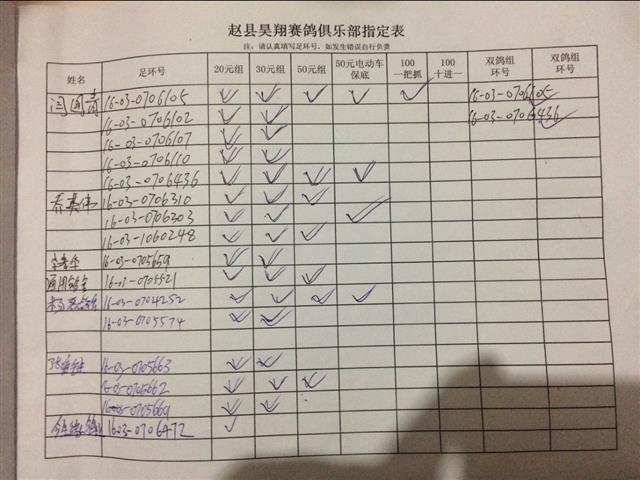 赵县昊翔赛鸽俱乐部指定表
注：请认真填写足环号，如发生错误自行负责
姓名 足环号 20元组 30元组 50元组 50元电动车保底 100一把抓 100十进一 双鸽组环号 双鸽组环号
16-03-0706105 ✓ ✓ ✓ ✓ ✓ 16-03-0706105
16-03-0706102 ✓ ✓ 16-03-0706436
16-03-0706107 ✓ ✓
16-03-0706110 ✓ ✓
16-03-0706436 ✓ ✓ ✓ ✓
16-03-0706310 ✓ ✓ ✓
16-03-0706303 ✓ ✓ ✓
16-03-1060248 ✓ ✓ ✓
16-03-0705659 ✓ ✓
16-03-0705521 ✓ ✓ ✓
16-03-0704252 ✓ ✓ ✓ ✓
16-03-0705574 ✓ ✓
16-03-0705663 ✓ ✓
16-03-0705662 ✓ ✓ ✓
16-03-0705669 ✓ ✓
16-03-0706472 ✓